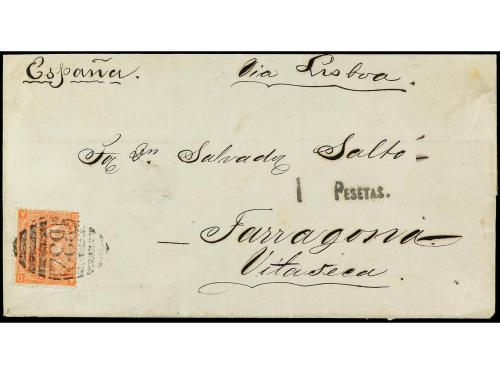 España. Via Lisboa.
Sr. Dn. Salvador Saltó
1 PESETAS.
Tarragona
Vilaseca